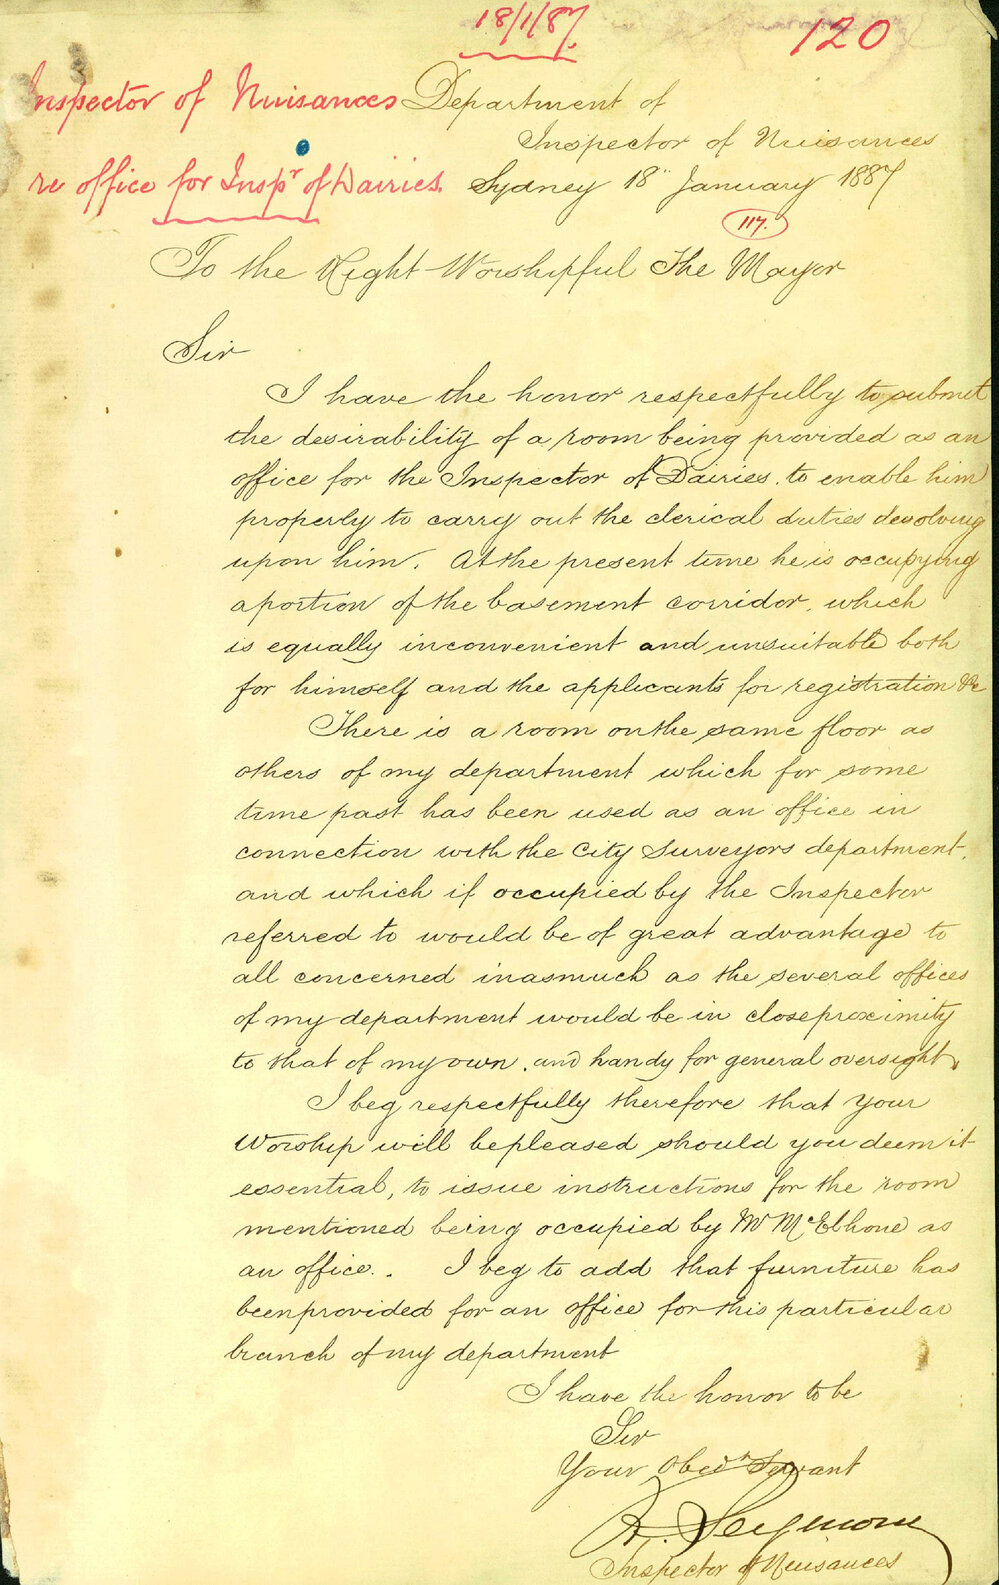 18/1/87.
120
Inspector of Nuisances
re office for Inspr of Dairies.
Department of
Inspector of Nuisances
Sydney 18" January 1887
117.
To the Right Worshipful The Mayor
Sir
I have the honor respectfully to submit
the desirability of a room being provided as an
office for the Inspector of Dairies. to enable him
properly to carry out the clerical duties devolving
upon him. At the present time he is occupying
a portion of the basement corridor, which
is equally inconvenient and unsuitable both
for himself and the applicants for registration &c
There is a room on the same floor as
others of my department which for some
time past has been used as an office in
connection with the City Surveyors department,
and which if occupied by the Inspector
referred to would be of great advantage to
all concerned inasmuch as the several offices
of my department would be in close proximity
to that of my own. and handy for general oversight.
I beg respectfully therefore that Your
Worship will be pleased should you deem it
essential, to issue instructions for the room
mentioned being occupied by Mr McElhone as
an office.. I beg to add that furniture has
been provided for an office for this particular
branch of my department
I have the honor to be
Sir
Your Obedt Servant
R. Seymour
Inspector of Nuisances